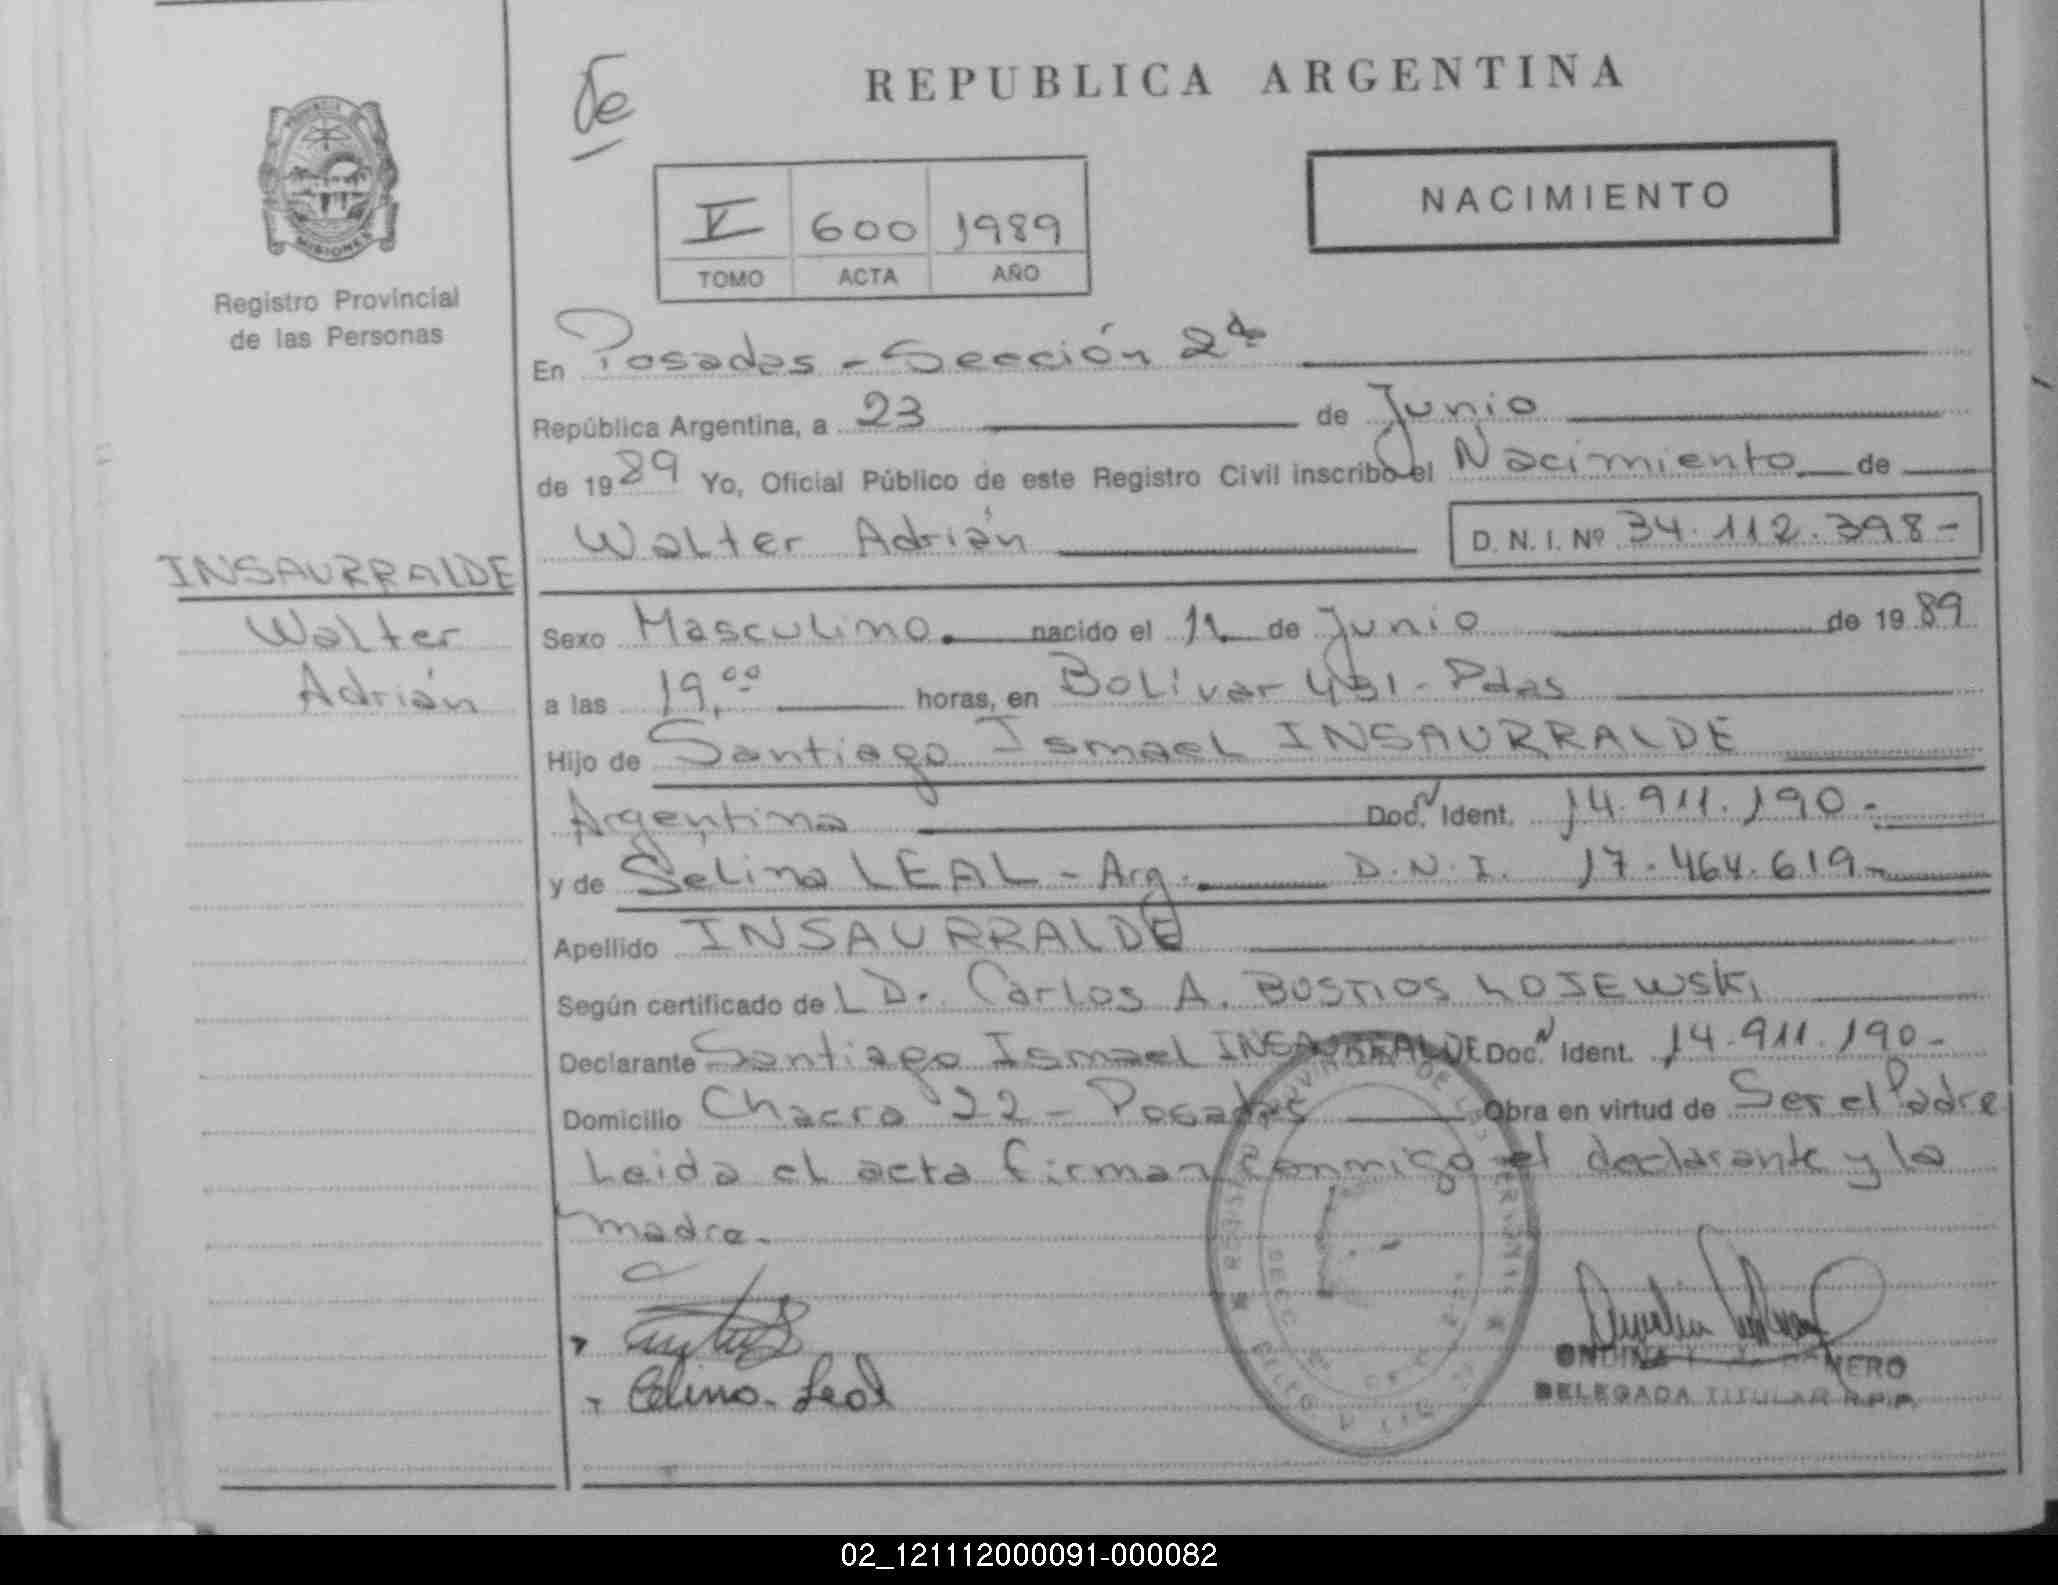 REPUBLICA ARGENTINA
NACIMIENTO
V 600 1989
TOMO ACTA AÑO
MISIONES
Registro Provincial
de las Personas
En Posadas - Sección 2ª
República Argentina, a 23 de Junio
de 1989 Yo, Oficial Público de este Registro Civil inscribo el Nacimiento de
Walter Adrián D.N.I. Nº 34.112.398-
INSAURRALDE
Walter
Adrián
Sexo Masculino. nacido el 11 de Junio de 1989
a las 19,00 horas, en Bolívar 431 - Pdas
Hijo de Santiago Ismael INSAURRALDE
Argentina Doc. Ident. 14.911.190.-
y de Selina LEAL - Arg. D.N.I. 17.464.619-
Apellido INSAURRALDE
Según certificado de L D. Carlos A. BUSTIOS LOJEWSKI
Declarante Santiago Ismael INSAURRALDE Doc. Ident. 14.911.190-
Domicilio Chacra 22 - Posadas Obra en virtud de Ser el Padre
Leida el acta firman conmigo el declarante y la
madre.
Celina Leal
ONDINA ROMERO
DELEGADA TITULAR R.P.P.
02_121112000091-000082